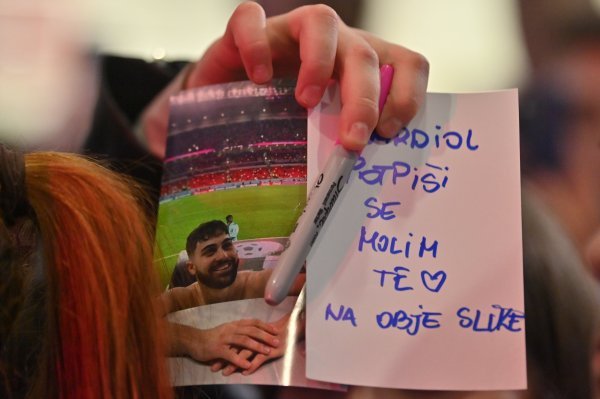 ARDiOL
POTPiŠi
SE
MOLiM
TE♡
NA OBJE SLiKE